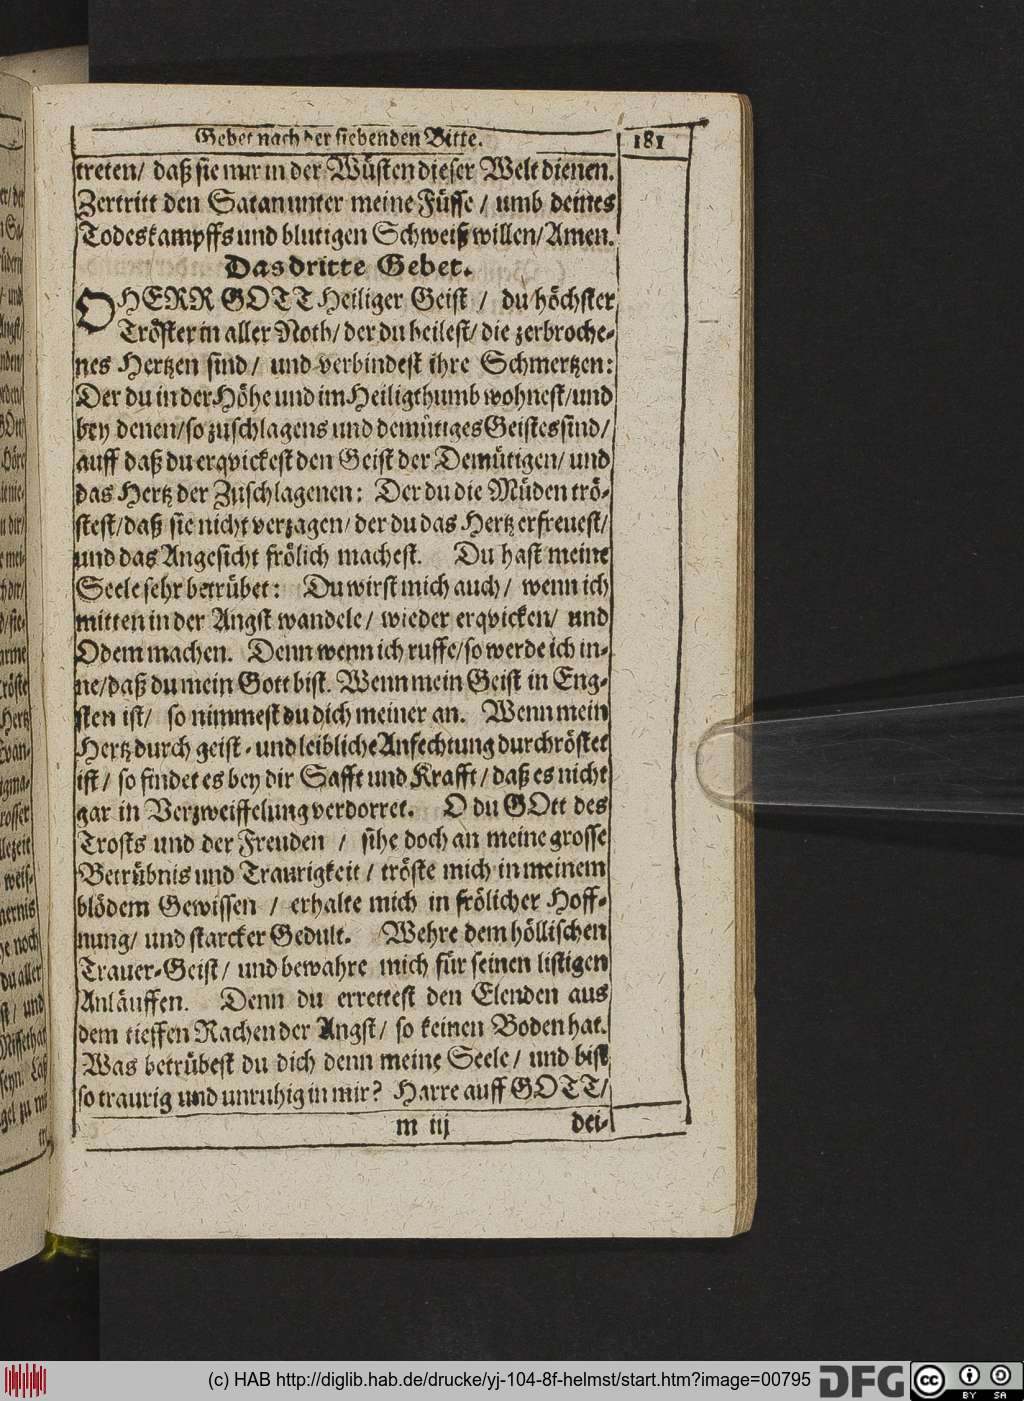 Gebet nach der siebenden Bitte.
181
treten/ daß sie mir in der Wüsten dieser Welt dienen.
Zertritt den Satan unter meine Füsse / umb deines
Todeskampffs und blutigen Schweiß willen/ Amen.
Das dritte Gebet.
O HERR GOTT Heiliger Geist / du höchster
Tröster in aller Noth/ der du heilest/ die zerbroche-
nes Hertzen sind/ und verbindest ihre Schmertzen:
Der du in der Höhe und im Heiligthumb wohnest/und
bey denen/so zuschlagens und demütiges Geistes sind/
auff daß du erqvickest den Geist der Demütigen/ und
das Hertz der Zuschlagenen: Der du die Müden trö-
stest/daß sie nicht verzagen/ der du das Hertz erfreuest/
und das Angesicht frölich machest. Du hast meine
Seele sehr betrübet: Du wirst mich auch/ wenn ich
mitten in der Angst wandele/ wieder erqvicken/ und
Odem machen. Denn wenn ich ruffe/so werde ich in-
ne/daß du mein Gott bist. Wenn mein Geist in Eng-
sten ist/ so nimmest du dich meiner an. Wenn mein
Hertz durch geist- und leibliche Anfechtung durchröstet
ist/ so findet es bey dir Safft und Krafft/ daß es nicht
gar in Verzweiffelung verdorret. O du GOtt des
Trosts und der Freuden / sihe doch an meine grosse
Betrübnis und Traurigkeit/ tröste mich in meinem
blödem Gewissen / erhalte mich in frölicher Hoff-
nung/ und starcker Gedult. Wehre dem höllischen
Trauer-Geist/ und bewahre mich für seinen listigen
Anläuffen. Denn du errettest den Elenden aus
dem tieffen Rachen der Angst/ so keinen Boden hat.
Was betrübest du dich denn meine Seele/ und bist
so traurig und unruhig in mir? Harre auff GOTT/
m iij
dei-
(c) HAB http://diglib.hab.de/drucke/yj-104-8f-helmst/start.htm?image=00795
DFG
cc
BY
SA